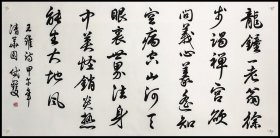 龍鍾一老翁徐
步謁禪宮欲
問義心義遙知
空病空山河天
眼裏世界法身
中莫怪銷炎熱
能生大地風
王維詩甲午年
清華園